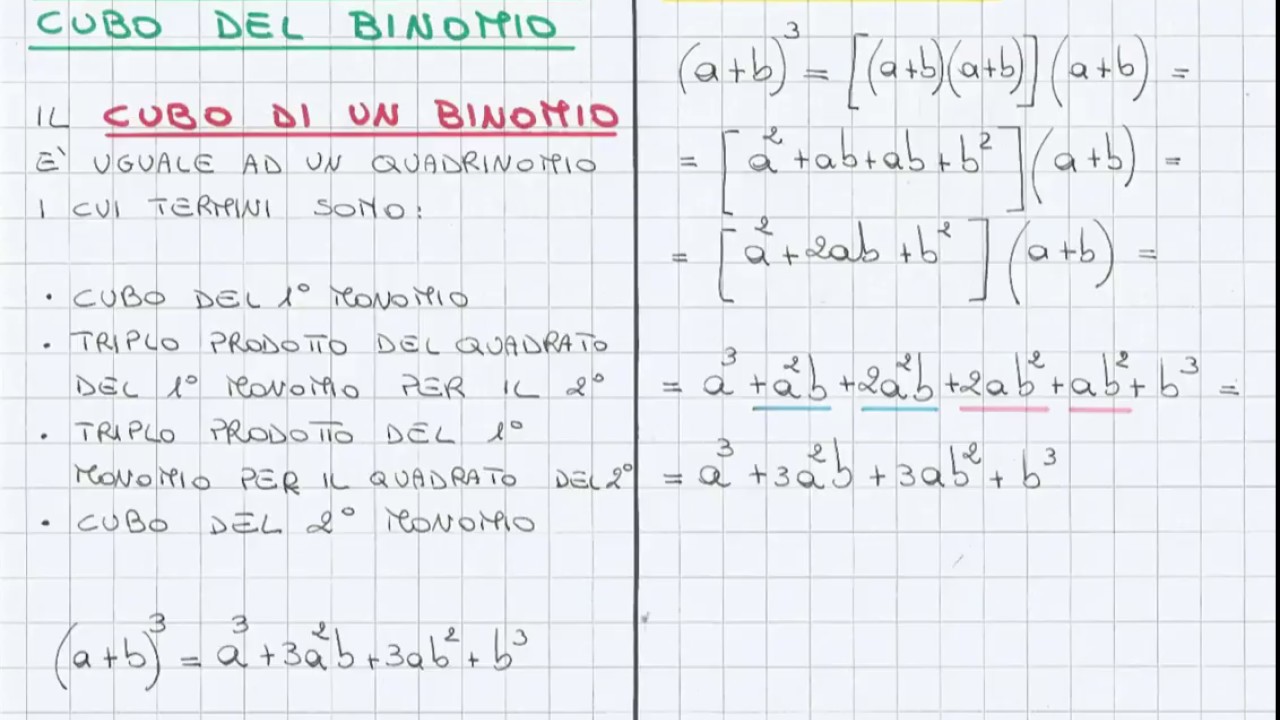 CUBO DEL BINOMIO
IL CUBO DI UN BINOMIO
E' UGUALE AD UN QUADRINOMIO
I CUI TERMINI SONO:
· CUBO DEL 1° MONOMIO
· TRIPLO PRODOTTO DEL QUADRATO
DEL 1° MONOMIO PER IL 2°
· TRIPLO PRODOTTO DEL 1°
MONOMIO PER IL QUADRATO DEL 2°
· CUBO DEL 2° MONOMIO
(a+b)³ = a³ + 3a²b + 3ab² + b³
(a+b)³ = [(a+b)(a+b)](a+b) =
= [a² + ab + ab + b²](a+b) =
= [a² + 2ab + b²](a+b) =
= a³ + a²b + 2a²b + 2ab² + ab² + b³ =
= a³ + 3a²b + 3ab² + b³